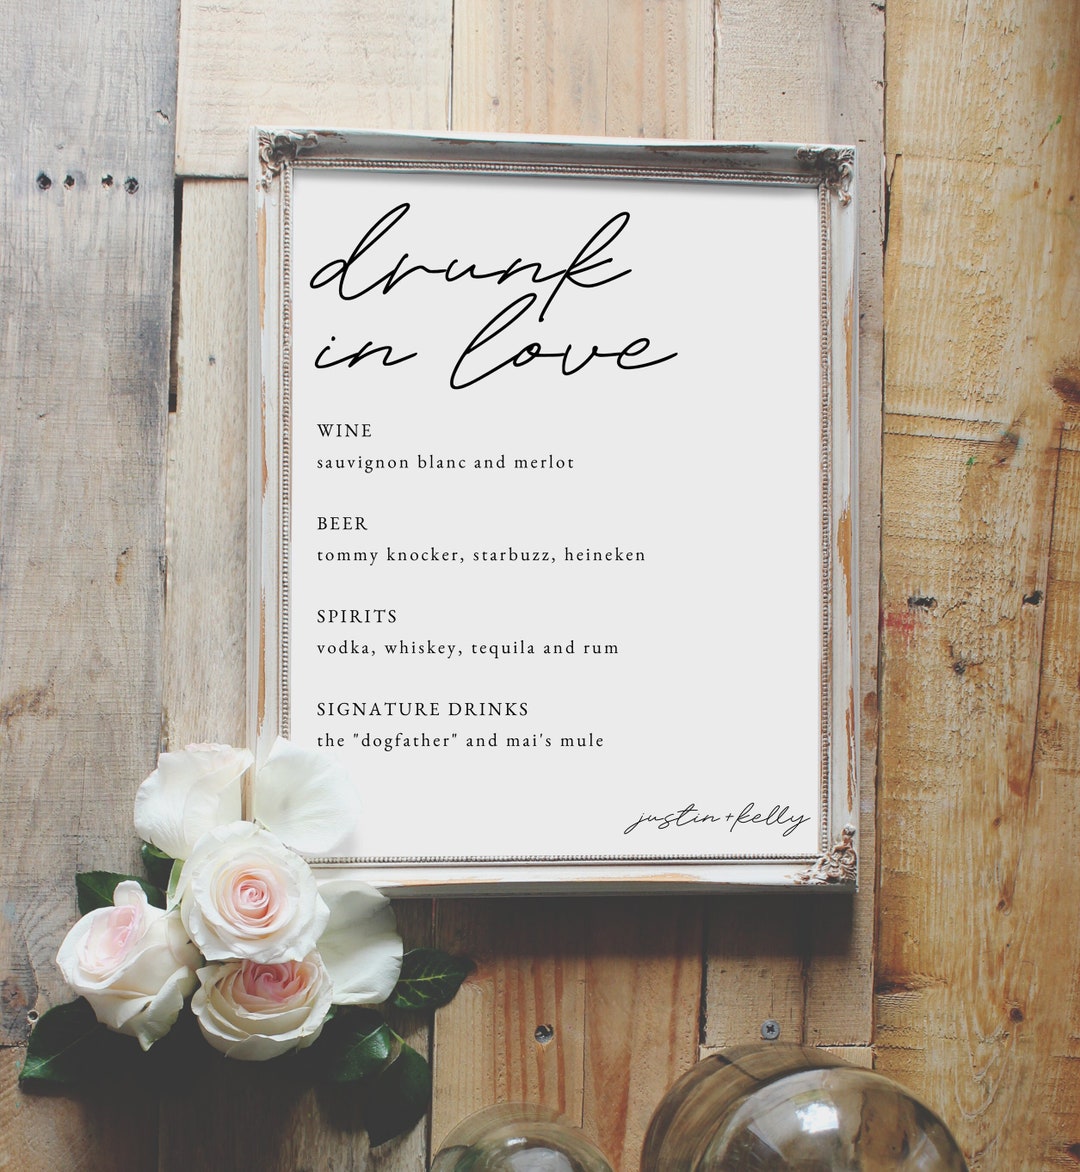 drunk
in love
WINE
sauvignon blanc and merlot
BEER
tommy knocker, starbuzz, heineken
SPIRITS
vodka, whiskey, tequila and rum
SIGNATURE DRINKS
the "dogfather" and mai's mule
justin + kelly